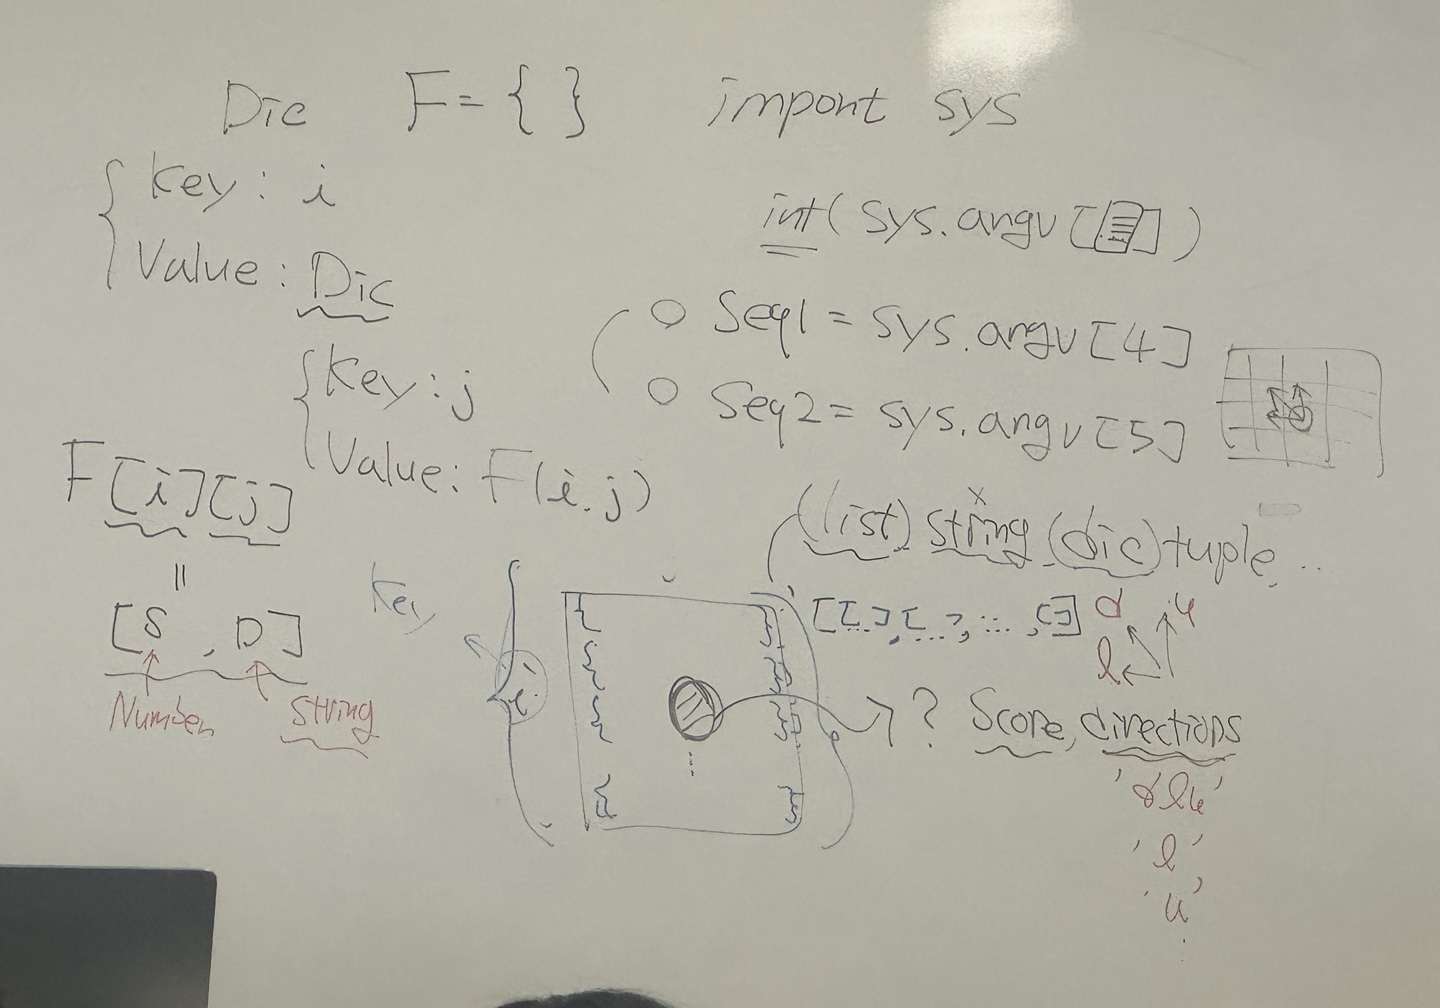 Dic F = { } import sys
Key : i
Value : Dic
int ( sys.argv [ ] )
Seq1 = sys.argv [4]
Seq2 = sys.argv [5]
Key : j
Value : F(i.j)
F[i][j]
=
[S , D]
Number String
(list) string (dic) tuple, ...
x
Key
i
[[...], [...], ..., [...]]
d u
l
...
? Score, directions
'dlu'
'l'
'u'